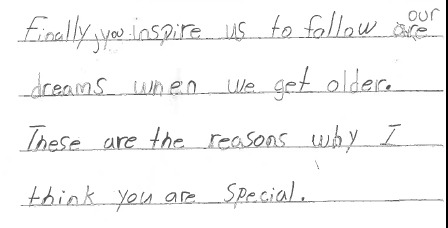 Finally, you inspire us to follow our
dreams when we get older.
These are the reasons why I
think you are special.